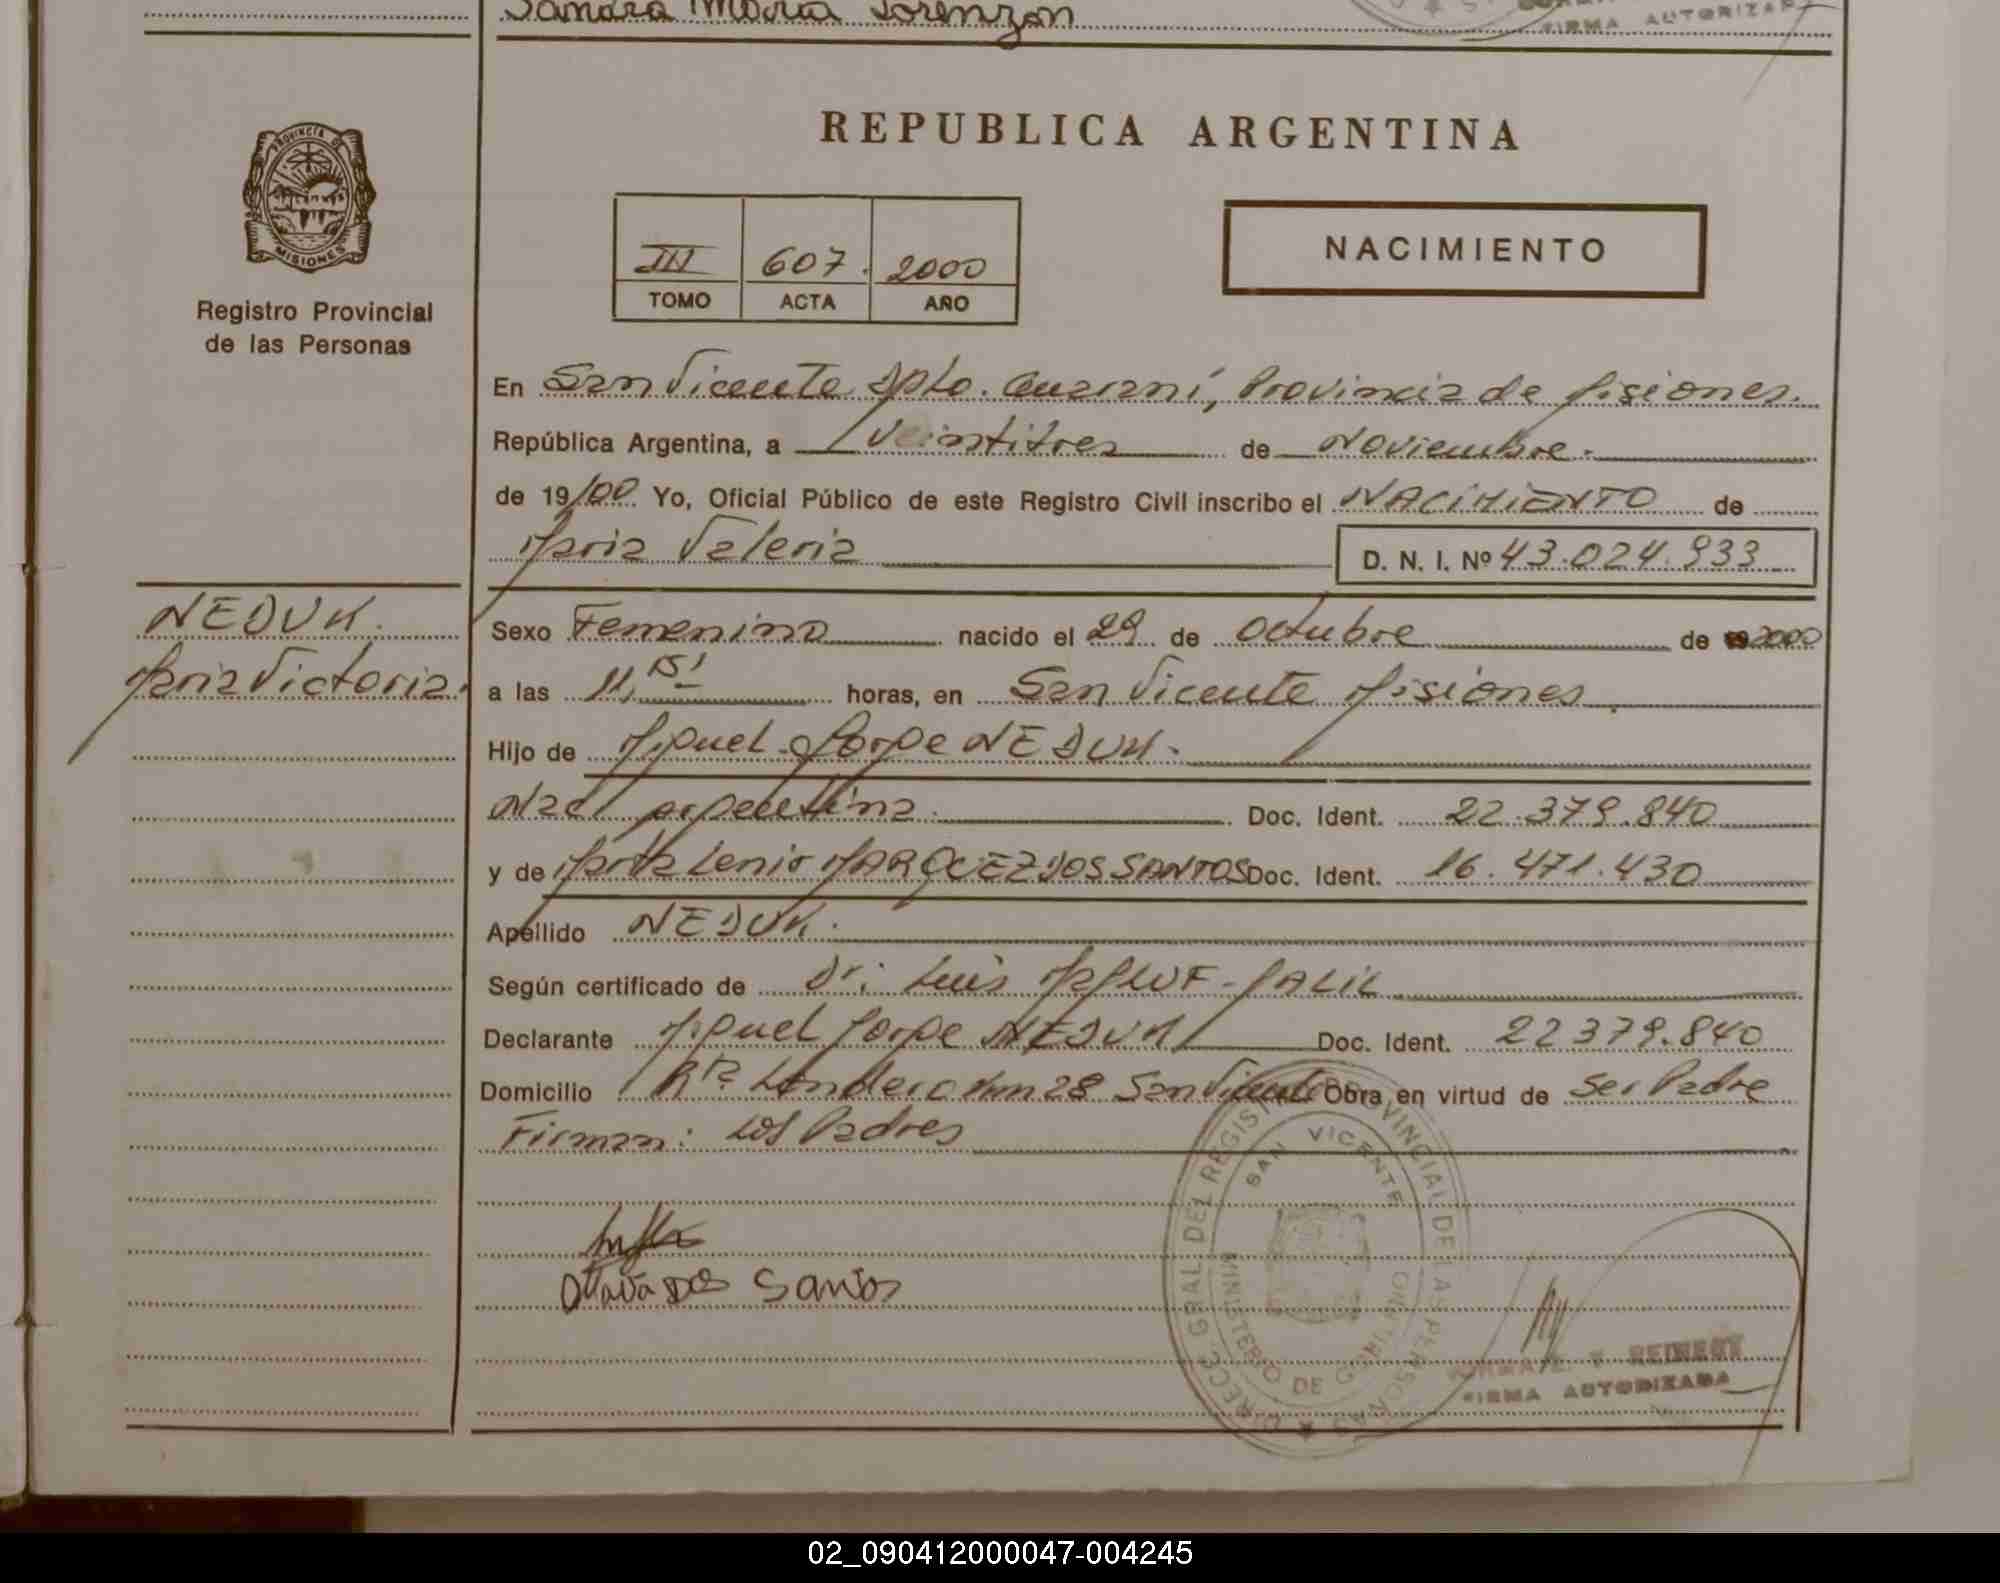 Sandra Maria Lorenzon
FIRMA AUTORIZADA
REPUBLICA ARGENTINA
PROVINCIA DE
MISIONES
Registro Provincial
de las Personas
III 607. 2000
TOMO ACTA AÑO
NACIMIENTO
En San Vicente Dpto. Guaraní, Provincia de Misiones.
República Argentina, a Veintitres de Noviembre.
de 19/00 Yo, Oficial Público de este Registro Civil inscribo el NACIMIENTO de
Maria Valeria D. N. I. Nº 43.024.933
NEDUK.
Maria Victoria.
Sexo Femenino nacido el 29 de Octubre de 2000
a las 11,15' horas, en San Vicente Misiones
Hijo de Miguel Jorge NEDUK.
Nacl argentina. Doc. Ident. 22.379.840
y de Marta Lenir MARQUEZ DOS SANTOS Doc. Ident. 16.471.430
Apellido NEDUK.
Según certificado de Dr: Luis MALUF-JALIL
Declarante Miguel Jorge NEDUK Doc. Ident. 22379.840
Domicilio Rta. Londero km 28 San Vicente Obra en virtud de Ser Padre
Firman: Los Padres
dos Santos
DIRECC. GRAL. DEL REGISTRO PROVINCIAL DE LAS PERSONAS
SAN VICENTE
MINISTERIO DE GOBIERNO
FIRMA AUTORIZADA
02_090412000047-004245